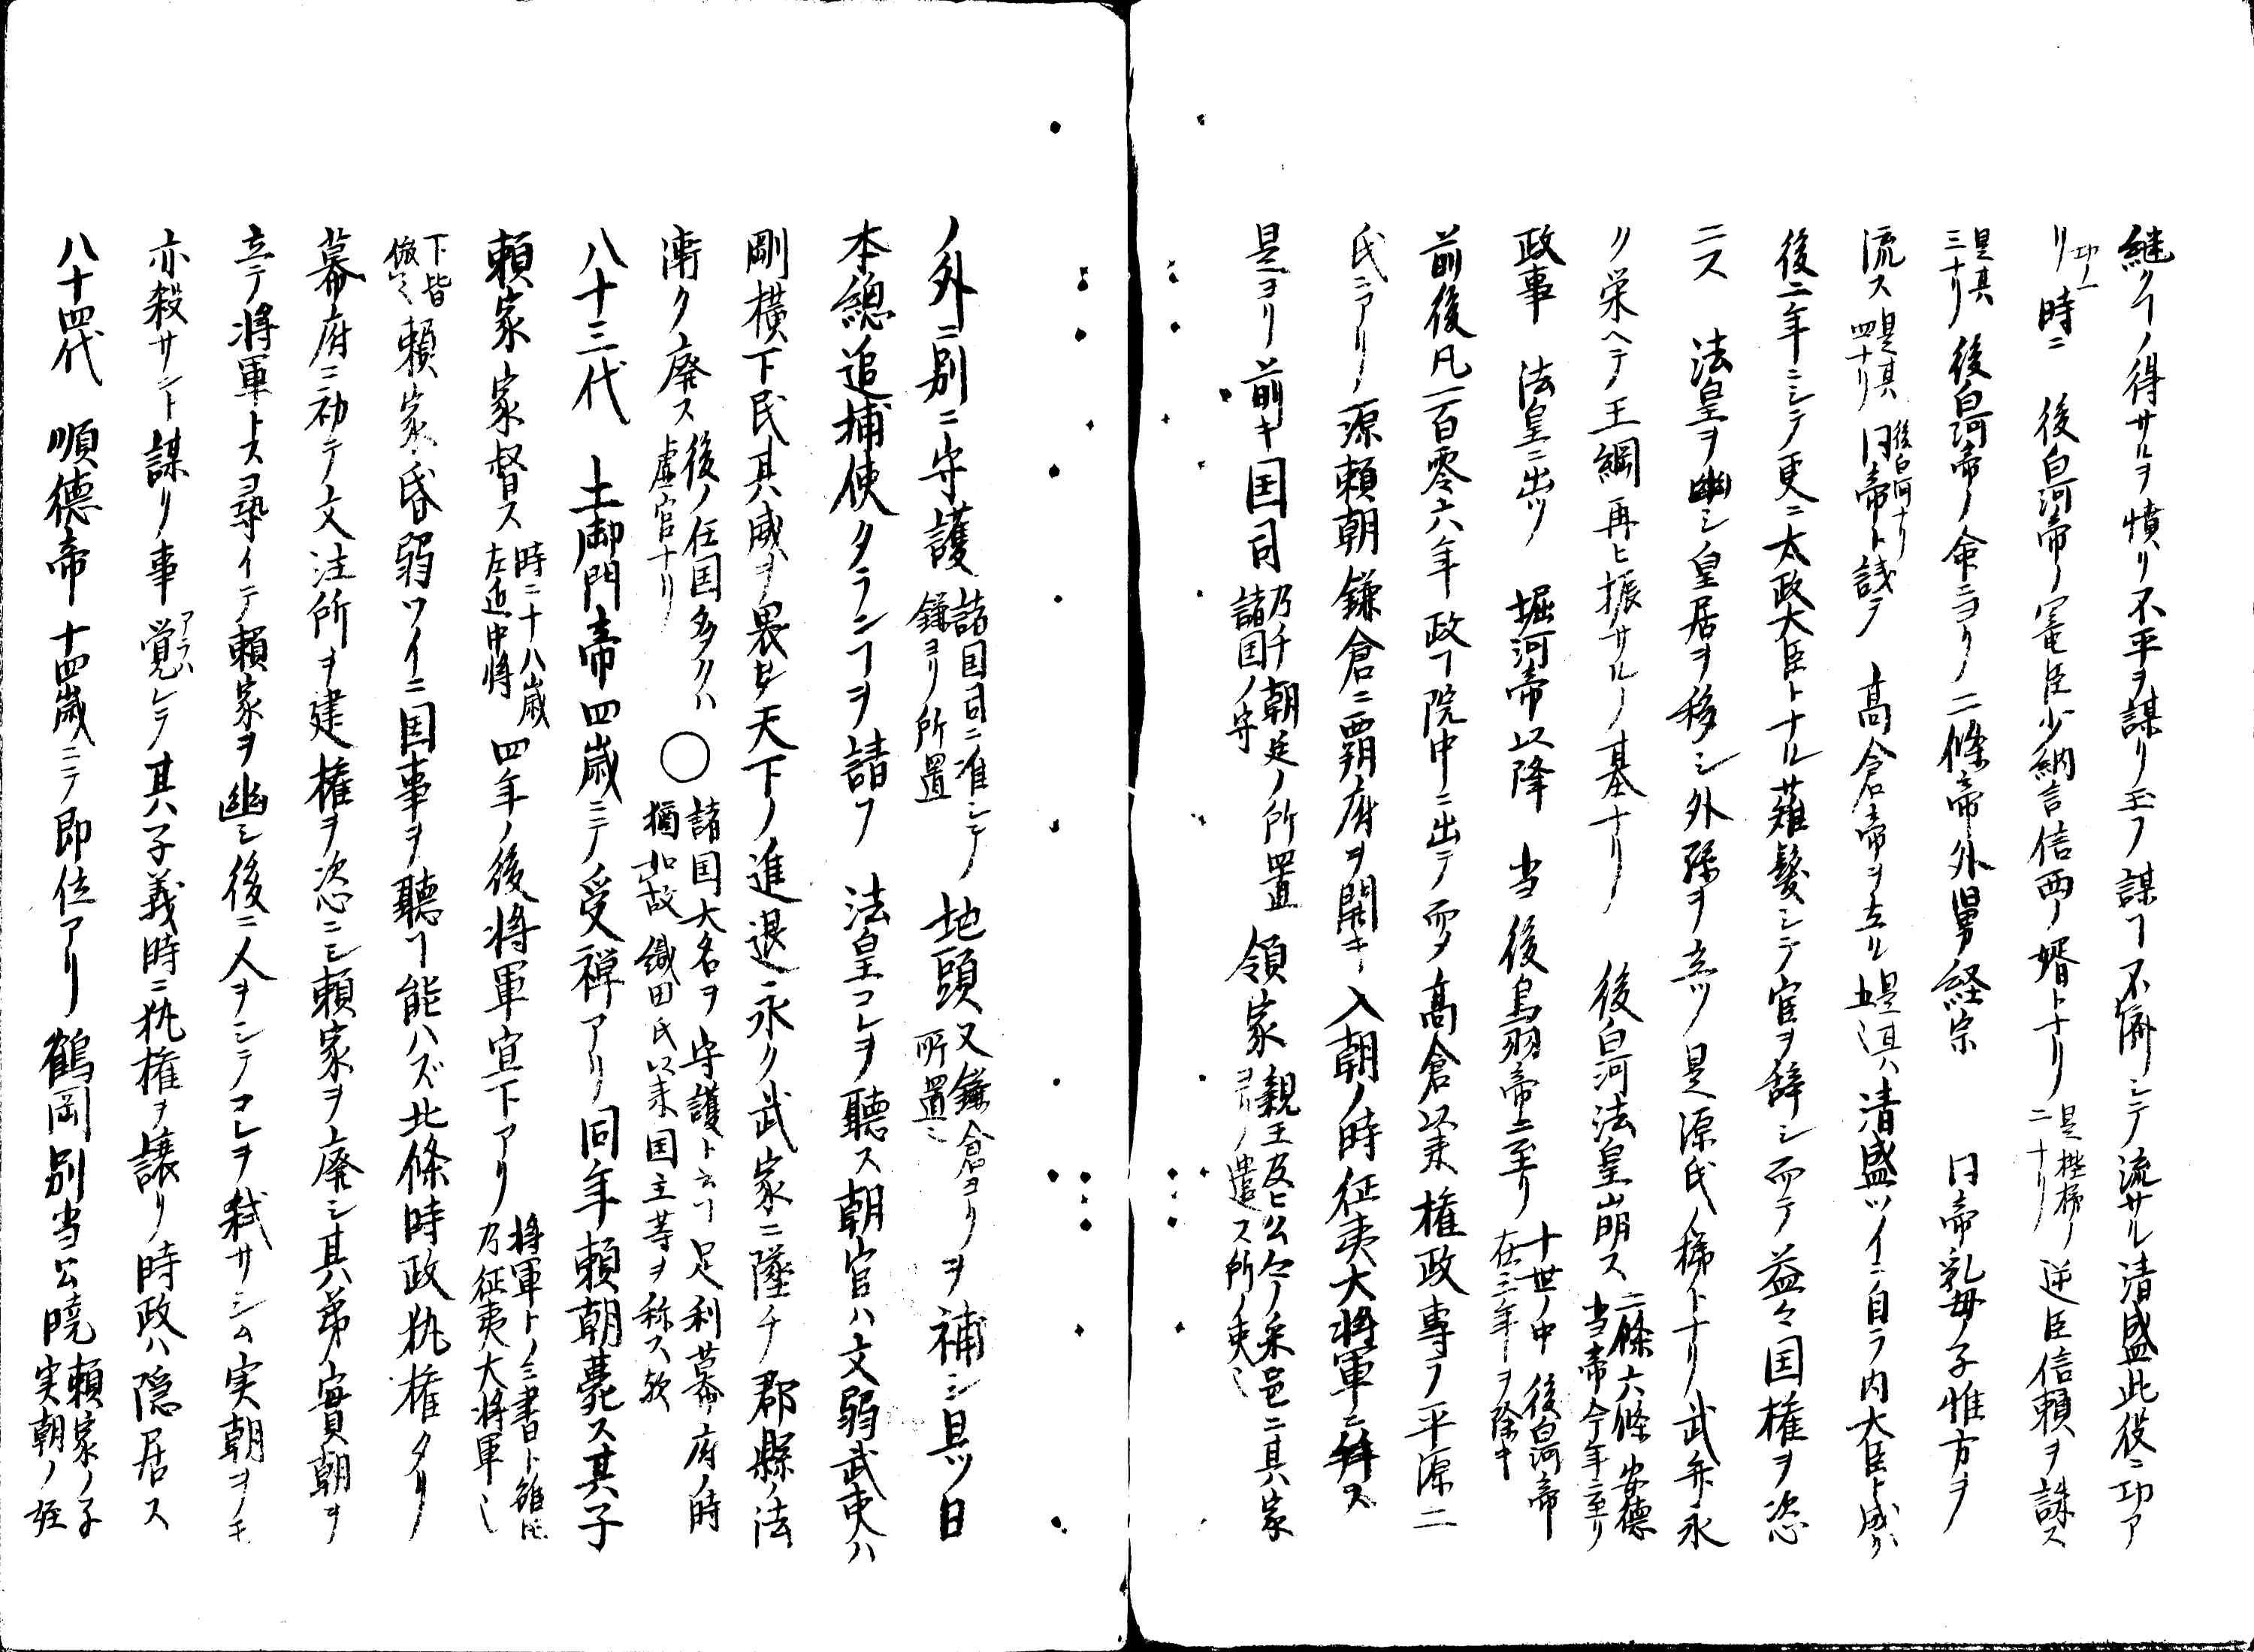 継クヿノ得サルヲ憤リ不平ヲ謀リ玉フ謀ヿ不済シテ流サル清盛此役ニ功ア
リ 功一 時ニ 後白河帝ノ寵臣少納言信西ノ婿トナリ 是楷梯ノ二ナリ 逆臣信頼ヲ誅ス
是其三ナリ 後白河帝ノ命ニヨリ二條帝外舅経宗 同帝乳母ノ子惟方ヲ
流ス 是其四ナリ 同帝ト 後白河ナリ 議テ 高倉帝ヲ立ル 是其五 清盛ツイニ自ラ内大臣ト成ル
後二年ニシテ更ニ太政大臣トナル薙髪シテ官ヲ辞シ而テ益々国権ヲ恣
ニス 法皇ヲ幽シ皇居ヲ移シ外孫ヲ立ツ是源氏ノ梯トナリ武弁永
ク栄ヘテ王綱再ヒ振サルノ基ナリ 後白河法皇崩ス 二條六條安徳当帝今年ニ至リ
政事 法皇ニ出ツ 堀河帝以降 当 後鳥羽帝ニ至リ 十世ノ中 後白河帝在位三年ヲ除キ
前後凡一百零六年政ヿ院中ニ出テ而〆高倉以来権政専ラ平源二
氏ニアリ源頼朝鎌倉ニ覇府ヲ開キ入朝ノ時征夷大将軍ニ拝ス
是ヨリ前キ国司 乃チ朝廷ノ所置諸国ノ守 領家 親王及ヒ公々ノ采邑ニ其家ヨリ遣ス所ノ吏也
ノ外ニ別ニ守護 諸国司ニ准シテ鎌ヨリ所置 地頭 又鎌倉ヨリ所置也 ヲ補シ且ツ日
本總追捕使タランヿヲ請フ 法皇コレヲ聴ス朝官ハ文弱武吏ハ
剛横下民其威ヲ畏ル天下ノ進退永ク武家ニ墜チ郡縣ノ法
漸ク廃ス 後ノ任国多クハ虚官ナリ ○ 諸国大名ヲ守護ト云ヿ足利幕府ノ時猶如故織田氏以来国主等ヲ称ス欤
八十三代 土御門帝四歳ニテ受禅アリ同年頼朝薨ス其子
頼家家督ス 時ニ十八歳左近中将 四年ノ後将軍宣下アリ 将軍トノミ書ト雖𪜈乃征夷大将軍也
下皆倣之 頼家昏弱ツイニ国事ヲ聴ヿ能ハズ北條時政執権タリ
幕府ニ初テ文注所ヲ建権ヲ恣ニシ頼家ヲ廃シ其弟實朝ヲ
立テ将軍トス尋イテ頼家ヲ幽シ後ニ人ヲシテコレヲ弑サシム実朝ヲモ
亦殺サント謀リ事覚 アラハ レテ其子義時ニ執権ヲ譲リ時政ハ隠居ス
八十四代 順徳帝十四歳ニテ即位アリ鶴岡別当公暁 頼家ノ子実朝ノ姪